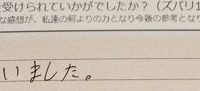 受けられていかがでしたか？（ズバリ1
な感想が、私達の何よりの力となり今後の参考となり
いました。